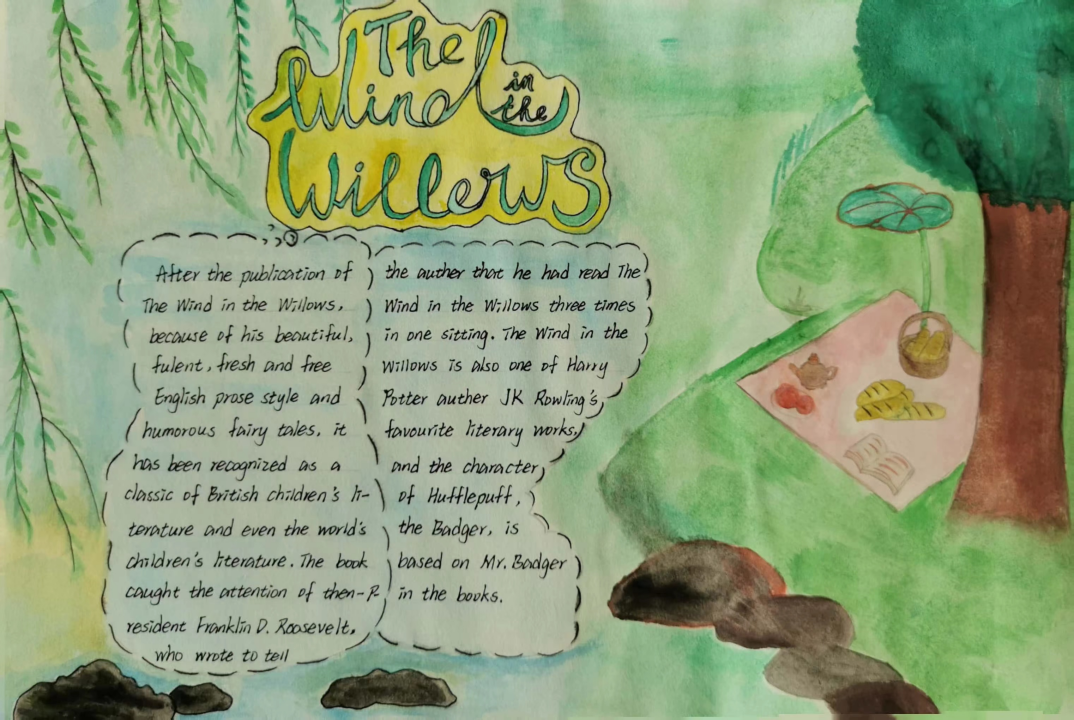 The
Wind in
the
Willows
After the publication of
The Wind in the Willows,
because of his beautiful,
fulent, fresh and free
English prose style and
humorous fairy tales, it
has been recognized as a
classic of British children's li-
terature and even the world's
children's literature. The book
caught the attention of then-P
resident Franklin D. Roosevelt,
who wrote to tell
the auther that he had read The
Wind in the Willows three times
in one sitting. The Wind in the
Willows is also one of Harry
Potter auther JK Rowling's
favourite literary works,
and the character
of Hufflepuff,
the Badger, is
based on Mr. Badger
in the books.